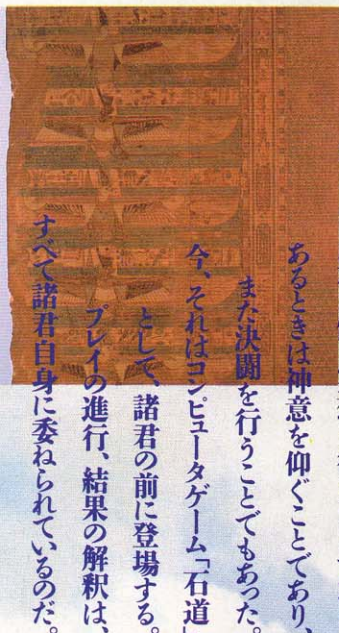 あるときは神意を仰ぐことであり、
また決闘を行うことでもあった。
今、それはコンピュータゲーム「石道」
として、諸君の前に登場する。
プレイの進行、結果の解釈は、
すべて諸君自身に委ねられているのだ。